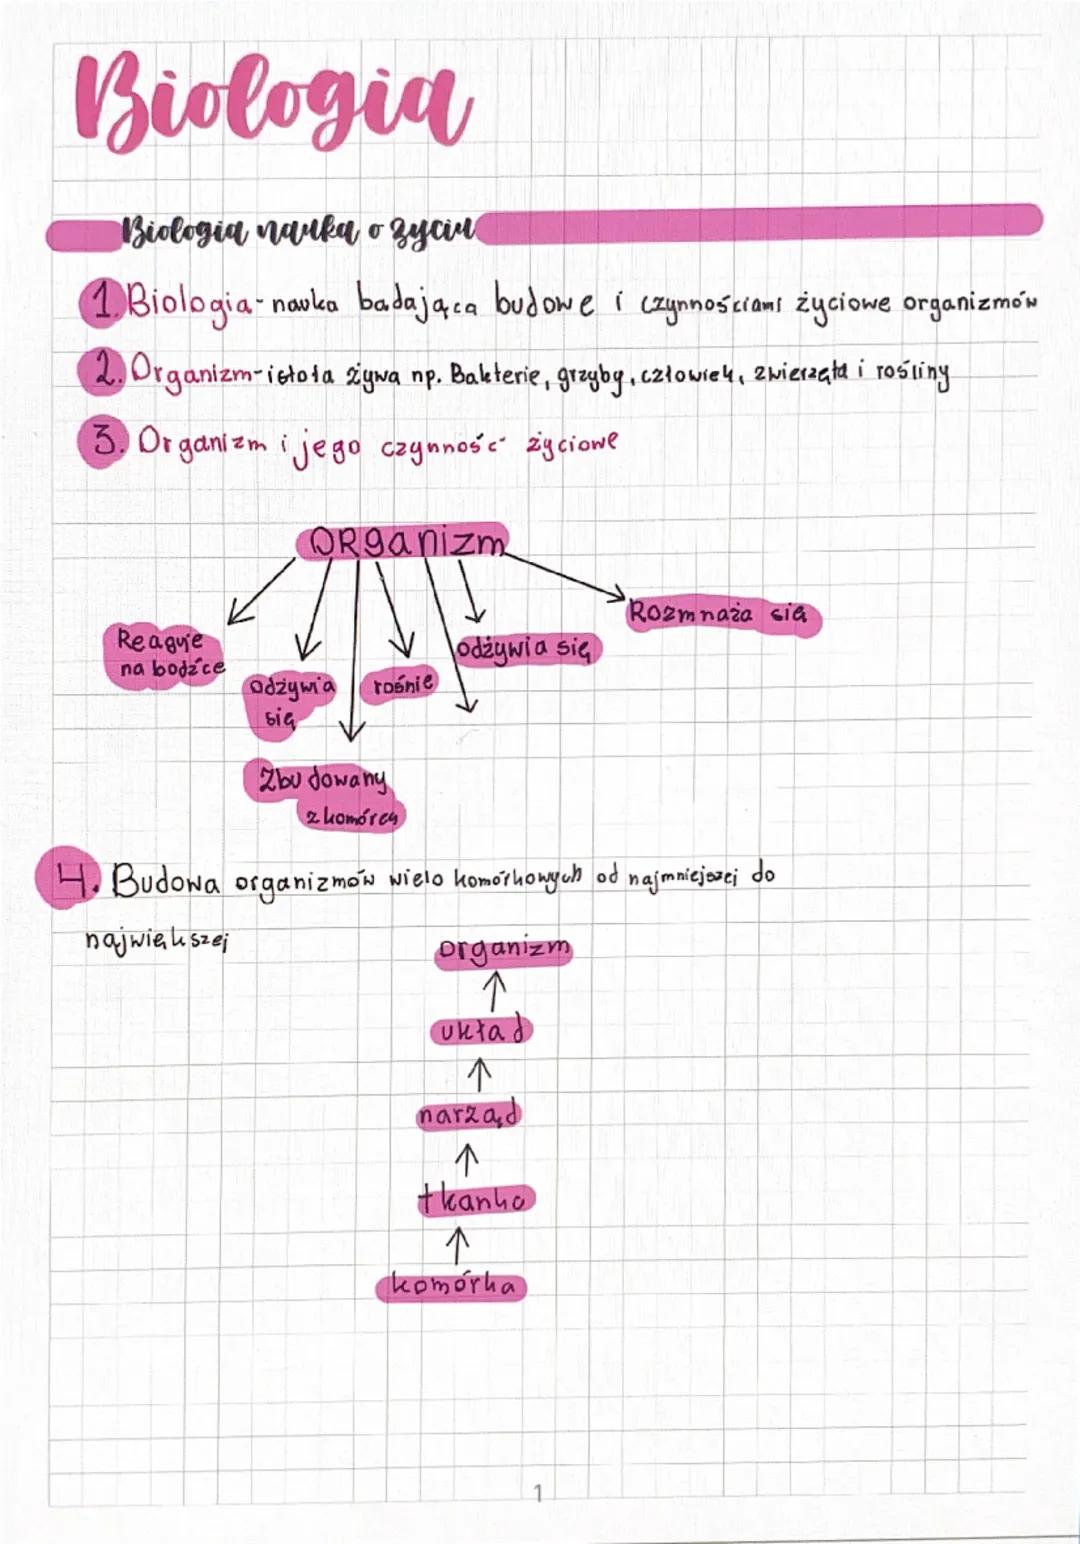 Biologia
Biologia nauka o życiu
1. Biologia - nauka badająca budowe i czynnościami życiowe organizmów
2. Organizm - istota żywa np. Bakterie, grzyby, człowiek, zwierzęta i rośliny
3. Organizm i jego czynnośc życiowe
ORganizm
Rozmnaża się
Reaguje
na bodźce
odżywia się
odżywia
się
rośnie
Zbudowany
z komórek
4. Budowa organizmów wielo komórkowych od najmniejszej do
największej
organizm
układ
narząd
tkanka
komórka
1